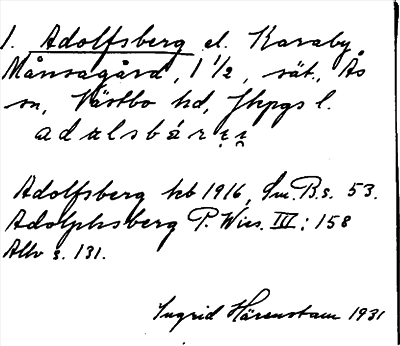 1. Adolfsberg el. Karaby
Månsagård, 1 1/2, sät., Ås
sn, Västbo hd, Jkpgs l.
adalsbárįį
Adolfsberg kb 1916, Sm. B.s. 53.
Adolphsberg P. Wies. III: 158
Allv s. 131.
Ingrid Härenstam 1931